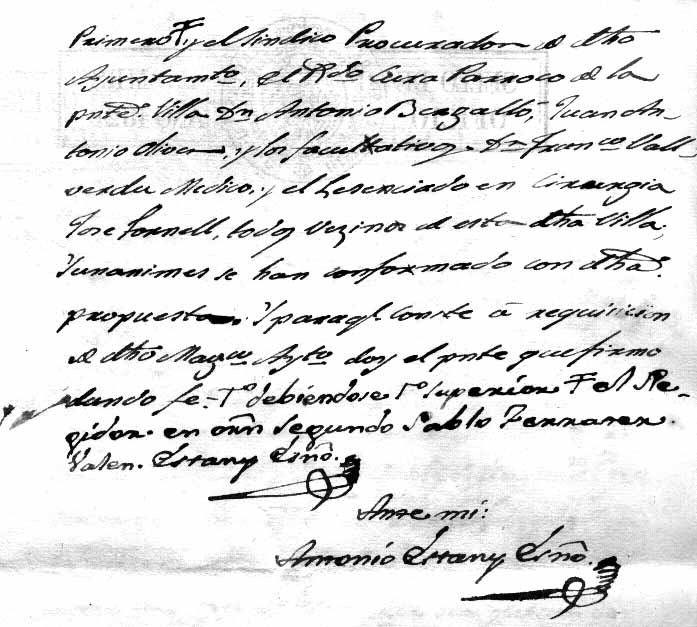 Primero Ŧ, y el Sindico Procurador de dho
Ayuntamto, el Rdo Cura Parroco de la
pnte. Villa Dn Antonio Bergalló, Juan An-
tonio Oliver, y los facultativos Dn Franco Vall-
verdu Medico, y el Lesenciado en Cirurgia
Jose Fornell, todos vezinos de esta dha Villa,
Y unanimes se han conformado con dha
propuesta. Y paraqe. Conste â requisicion
de dho Magco Ayto doy el pnte que firmo
dando fe = To debiendose To superior Ŧ el Re-
gidor en orn segundo Pablo Ferrater
Valen. Estany Esño.
Ante mi:
Antonio Estany Esño.